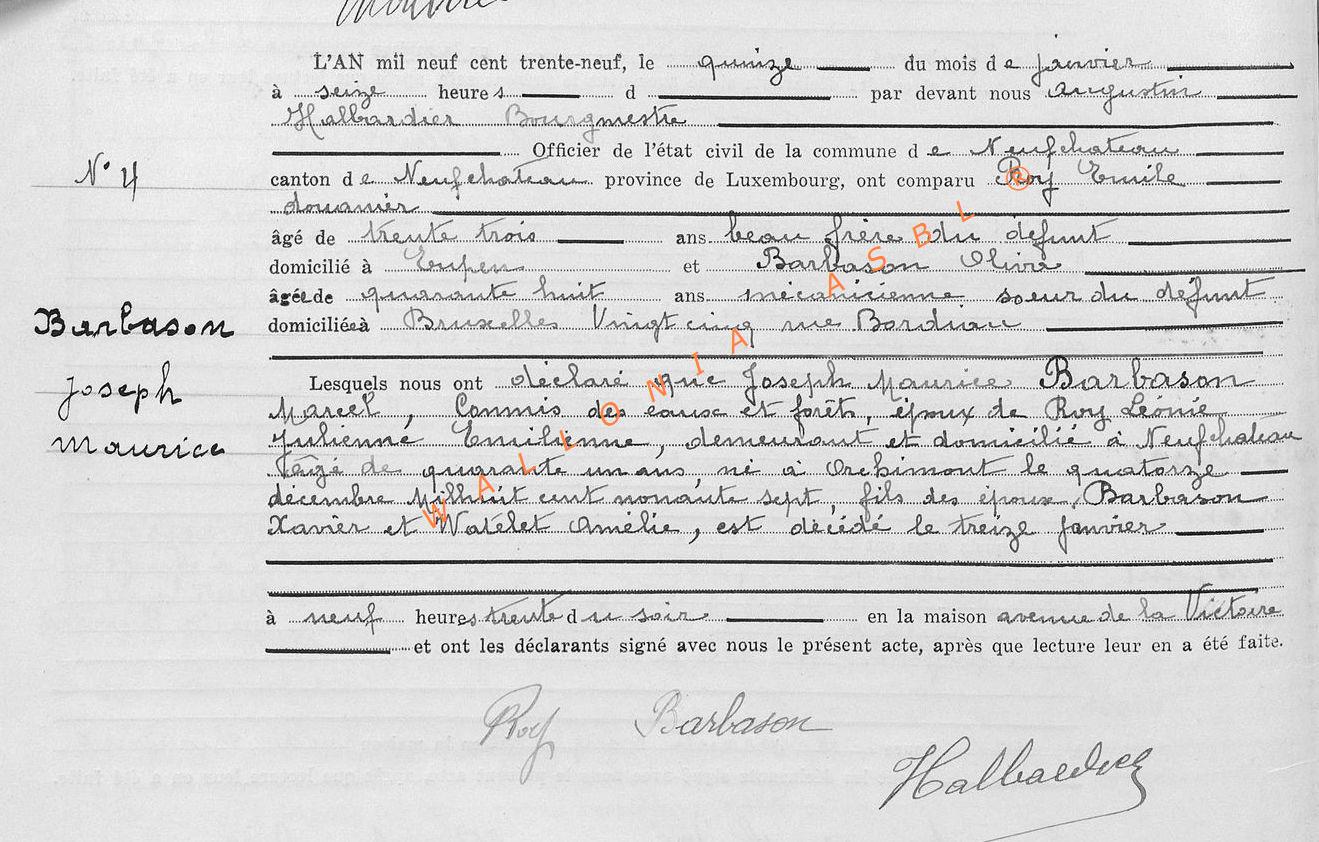 L'AN mil neuf cent trente-neuf, le quinze du mois de janvier
à seize heures d par devant nous Augustin
Halbardier Bourgmestre
Officier de l'état civil de la commune de Neufchateau
N° 4
canton de Neufchateau province de Luxembourg, ont comparu Roy Emile
douanier
âgé de trente trois ans beau frère du défunt
domicilié à Eupen et Barbason Olive
âgée de quarante huit ans mécanicienne soeur du défunt
Barbason
domiciliée à Bruxelles Vingt cinq rue Bordiau
Joseph
Lesquels nous ont déclaré que Joseph Maurice Barbason
Marcel, Commis des eaux et forêts, époux de Roy Léonie
Maurice
Julienne Emilienne, demeurant et domicilié à Neufchateau
âgé de quarante un ans, né à Orchimont le quatorze
décembre Milhuit cent nonante sept, fils des époux Barbason
Xavier et Watelet Amélie, est décédé le treize janvier
à neuf heures trente du soir en la maison avenue de la Victoire
et ont les déclarants signé avec nous le présent acte, après que lecture leur en a été faite.
Roy Barbason
Halbardier
WALLONIA ASBL ®